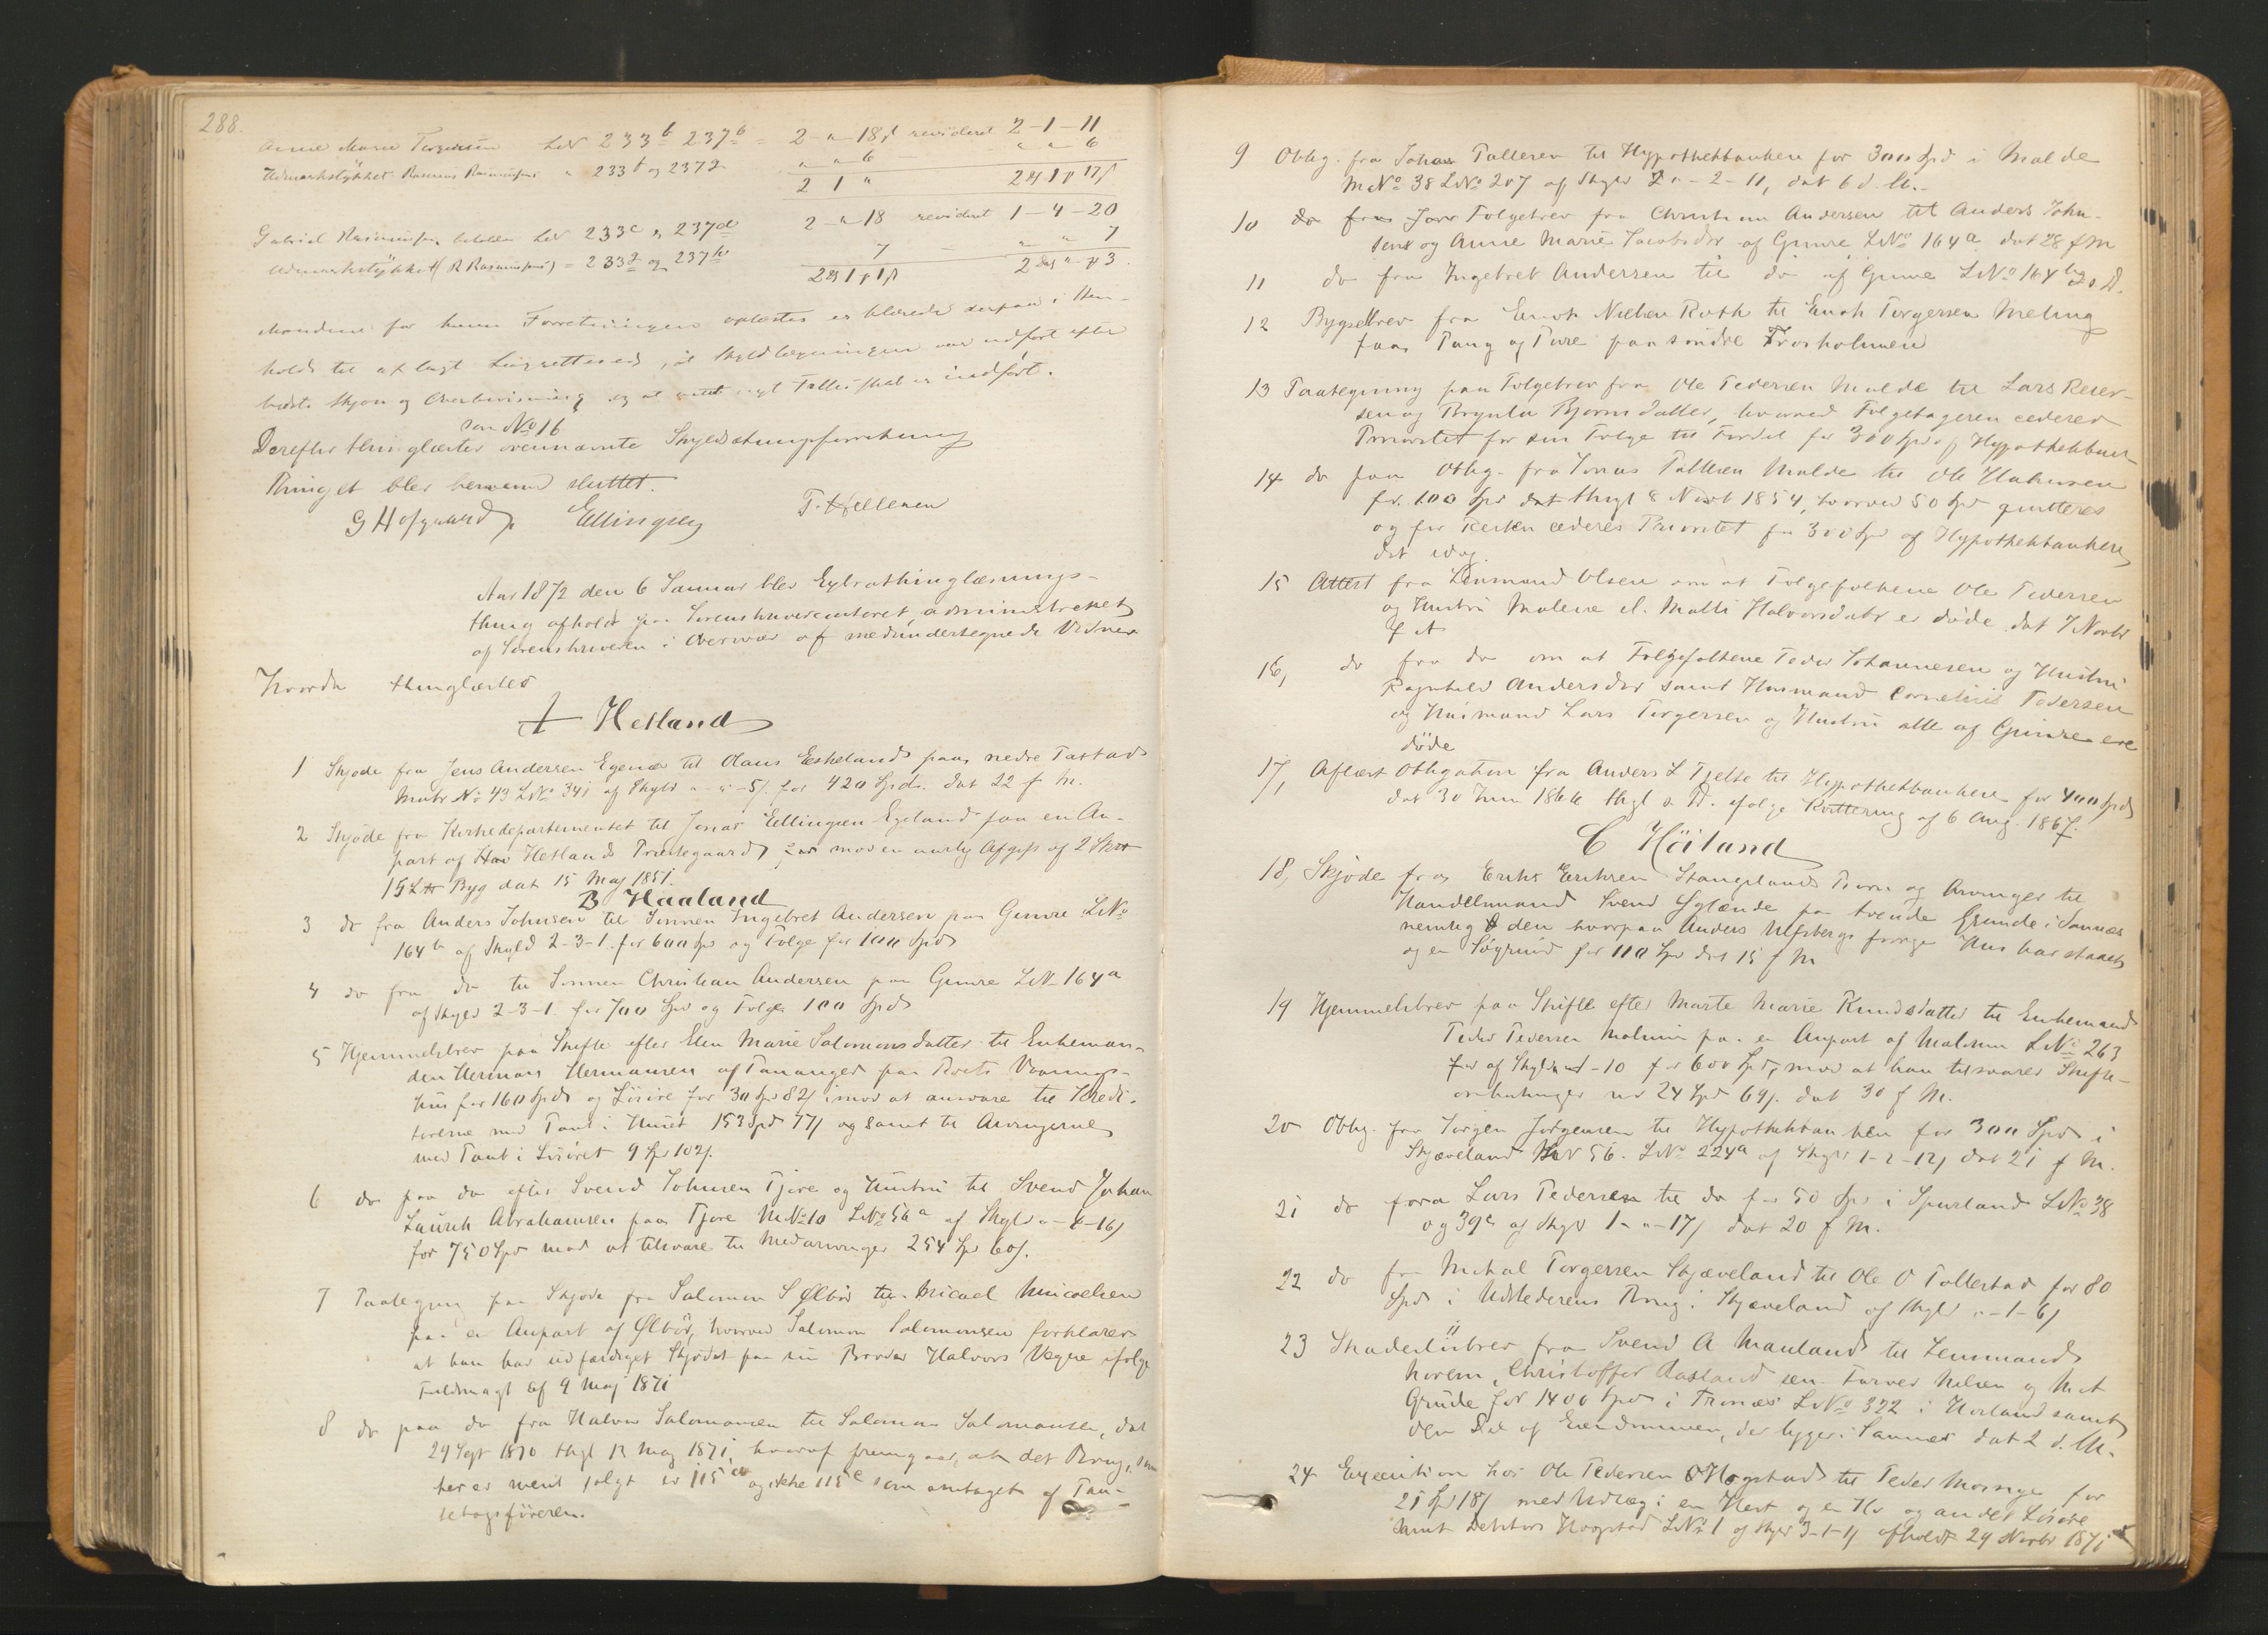 288.
Anne Marie Torgersen LN 233b 237b = 2 - " - 18 ß revideret 2 - 1 - 11
Udmarkstykket Rasmus Rasmussens " 233f og 237g " " 6 — " " 6
2 1 " 2 1 17
Gabriel Rasmussen beholder LN 233c & 237d 2 - " - 18 revideret 1 - 4 - 20
Udmarkstykket (R Rasmussens) = 233g og 237h 7 — " " 7
2 1 1 2 " 3.
Mændene for hvem Forretningen oplæstes erklærede derpaa i Hen-
hold til aflagt Laugrettesed, at Skyldlægningen var udført efter
bedste Skjøn og Overbeviisning og at intet nyt Fællesskab er indført.
som No 16
Derefter thinglæstes ovennævnte Skyldsætningsforretning
Thinget blev hermed sluttet.
G Hofgaard Ellingsen T. Hellesen
Aar 1872 den 6 Januar blev Extrathinglæsnings-
thing afholdt paa Sorenskrivercontoret, administreret
af Sorenskriveren i Overvær af medundertegnede Vidner
Hvorda thinglæstes
A Hetland
1 Skjøde fra Jens Andersen Egenæs til Olaus Eskeland paa nedre Tastad
Matr No 43 LNo 341 af Skyld " - " - 5 ß. for 420 Spd. dat 22 f. M.
2 Skjøde fra Kirkedepartementet til Jonas Ellingsen Egeland paa en An-
part af Hetlands Præstegaard, mod en aarlig Afgift af 2 Skpr
Byg dat 15 Maj 1851.
B Haaland
3 do fra Anders Johnsen til Sønnen Ingebret Andersen paa Gimre LNo
164b af Skyld 2-3-1. for 600 Spd og Følge for 100 Spd
4 do fra do til Sønnen Christian Andersen paa Gimre LN 164a
af Skyld 2-3-1 for 700 Spd og Følge 100 Spd
5 Hjemmelsbrev paa Skifte efter Ellen Marie Salomonsdatter til Enkeman-
den Herman Hermansen af Tananger paa Boets Vaanings-
hus for 160 Spd og Løsøre for 30 Spd 82 ß imod at ansvare til Kredi-
torerne med Pant i Huset 153 Spd 77 ß og samt til Arvingerne
med Pant i Løsøret 9 Spd 102 ß.
6 do paa do efter Svend Johnsen Tjore og Hustru til Svend Johan
Laurits Abrahamsen paa Tjore MNo 10 LNo 56a af Skyld " - 4 - 16 ß
for 750 Spd mod at tilsvare til Medarvinger 254 Spd 60 ß.
7 Paategning paa Skjøde fra Salomon S Ølbør til Micael Micaelsen
paa en Anpart af Ølbør, hvorved Salomon Salomonsen forklarer
at han har udfærdiget Skjødet paa sin Broder Halvors Vegne ifølge
Fuldmagt af 9 Maj 1871
8 do paa do fra Halvor Salomonsen til Salomon Salomonsen, dat
29 Sept 1870 thgl 12 Maj 1871, hvoraf fremgaar, at det Brug, som
her er ment solgt er 115 og ikke 115c som antaget af Pan-
tebogsføreren.
9 Oblig. fra Johan Pallesen til Hypothekbanken for 300 Spd i Malde
MNo 38 LNo 207 af Skyld 2 " - 2 - 11, dat 6 d. M.
10 Følgebrev fra Christian Andersen til Anders John-
sen og Anne Marie Jacobsdtr af Gimre LNo 164a dat 28 f M
11 do fra Ingebret Andersen til do af Gimre LNo 164b s. D.
12 Bygselbrev fra Enok Nielsen Roth til Enok Torgersen Meling
paa Tang og Tare paa søndre Troxholmen
13 Paategning paa Følgebrev fra Ole Pedersen Malde til Lars Reier-
sen og Brynla Bjørnsdatter, hvorved Følgetageren cederer
Prioritet for sin Følge til Fordel for 300 Spd af Hypothekbanken
14 do paa Oblig. fra Jonas Pallesen Malde til Ole Haavesen
for 100 Spd thgl 8 Novb 1854, hvorved 50 Spd quitteres
og for Resten cederes Prioritet for 300 Spd af Hypothekbanken
dat idag.
15 Attest fra Lensmand Olsen om at Følgefolkene Ole Pedersen
og Hustru Malene el. Malli Halvorsdatr er døde dat 7 Novbr
f A
16, do fra do om at Følgefolkene Peder Johannesen og Hustru
Ragnhild Andersdtr samt Husmand Cornelius Pedersen
og Husmand Lars Torgersen og Hustru alle af Gimre ere
døde
17, Aflæst Obligation fra Anders L Tjelte til Hypothekbanken for 400 Spd
dat 30 Juni 1866 thgl s. D. ifølge Kvittering af 6 Aug. 1867.
C Höiland
18, Skjøde fra Eriks Eriksen Stangelands Børn og Arvinger til
Handelsmand Svend Øglænde paa tvende Grunde i Sannæs
nemlig den hvorpaa Anders Ulfsbergs forrige Hus har staaet
og en Søgrund for 110 Spd dat 15 f M
19 Hjemmelsbrev paa Skifte efter Marte Marie Knudsdatter til Enkemand
Peder Pedersen Malmin paa en Anpart af Malmin LNo 263
af Skyld " - 10 for 600 Spd, mod at han tilsvarer Skifte-
omkostninger med 24 Spd 69 ß. dat 30 f M.
20 Oblig. fra Jørgen Jørgensen til Hypothekbanken for 300 Spd i
Skjæveland MN 56. LNo 224a af Skyld 1-2-12 ß dat 21 f M.
21 do fra Lars Pedersen til do for 50 Spd i Spurland LNo 38
og 39c af Skyld 1 - " - 17 ß dat 20 f M.
22 do fra Mikal Torgersen Skjæveland til Ole O Tollestad for 80
Spd i Udstederens Brug i Skjæveland af Skyld " - 1 - 6 ß
23 Skadesløsbrev fra Svend A Mauland til Lensmand
Christoffer Aasland sen. Farver Nielsen og
Grude for 1400 Spd i Tronæs LNo 322 i Høiland samt
den Del af Eiendommen, der ligger i Sannæs dat 2 d. M.
24 Execution hos Ole Pedersen Hogstad til Peder Mossige for
21 Spd 18 ß med Udlæg i en Hest og en Ko og andet Løsøre
samt Debitors Hogstad LNo 1 af Skyld 3-1-1 ß afholdt 29 Novbr 1871